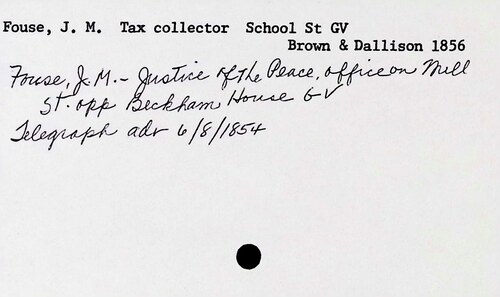 Fouse, J. M.  Tax collector  School St GV
Brown & Dallison 1856
Fouse, J. M. - Justice of the Peace, office on Mill
St. opp Beckham House GV
Telegraph adv 6/8/1854